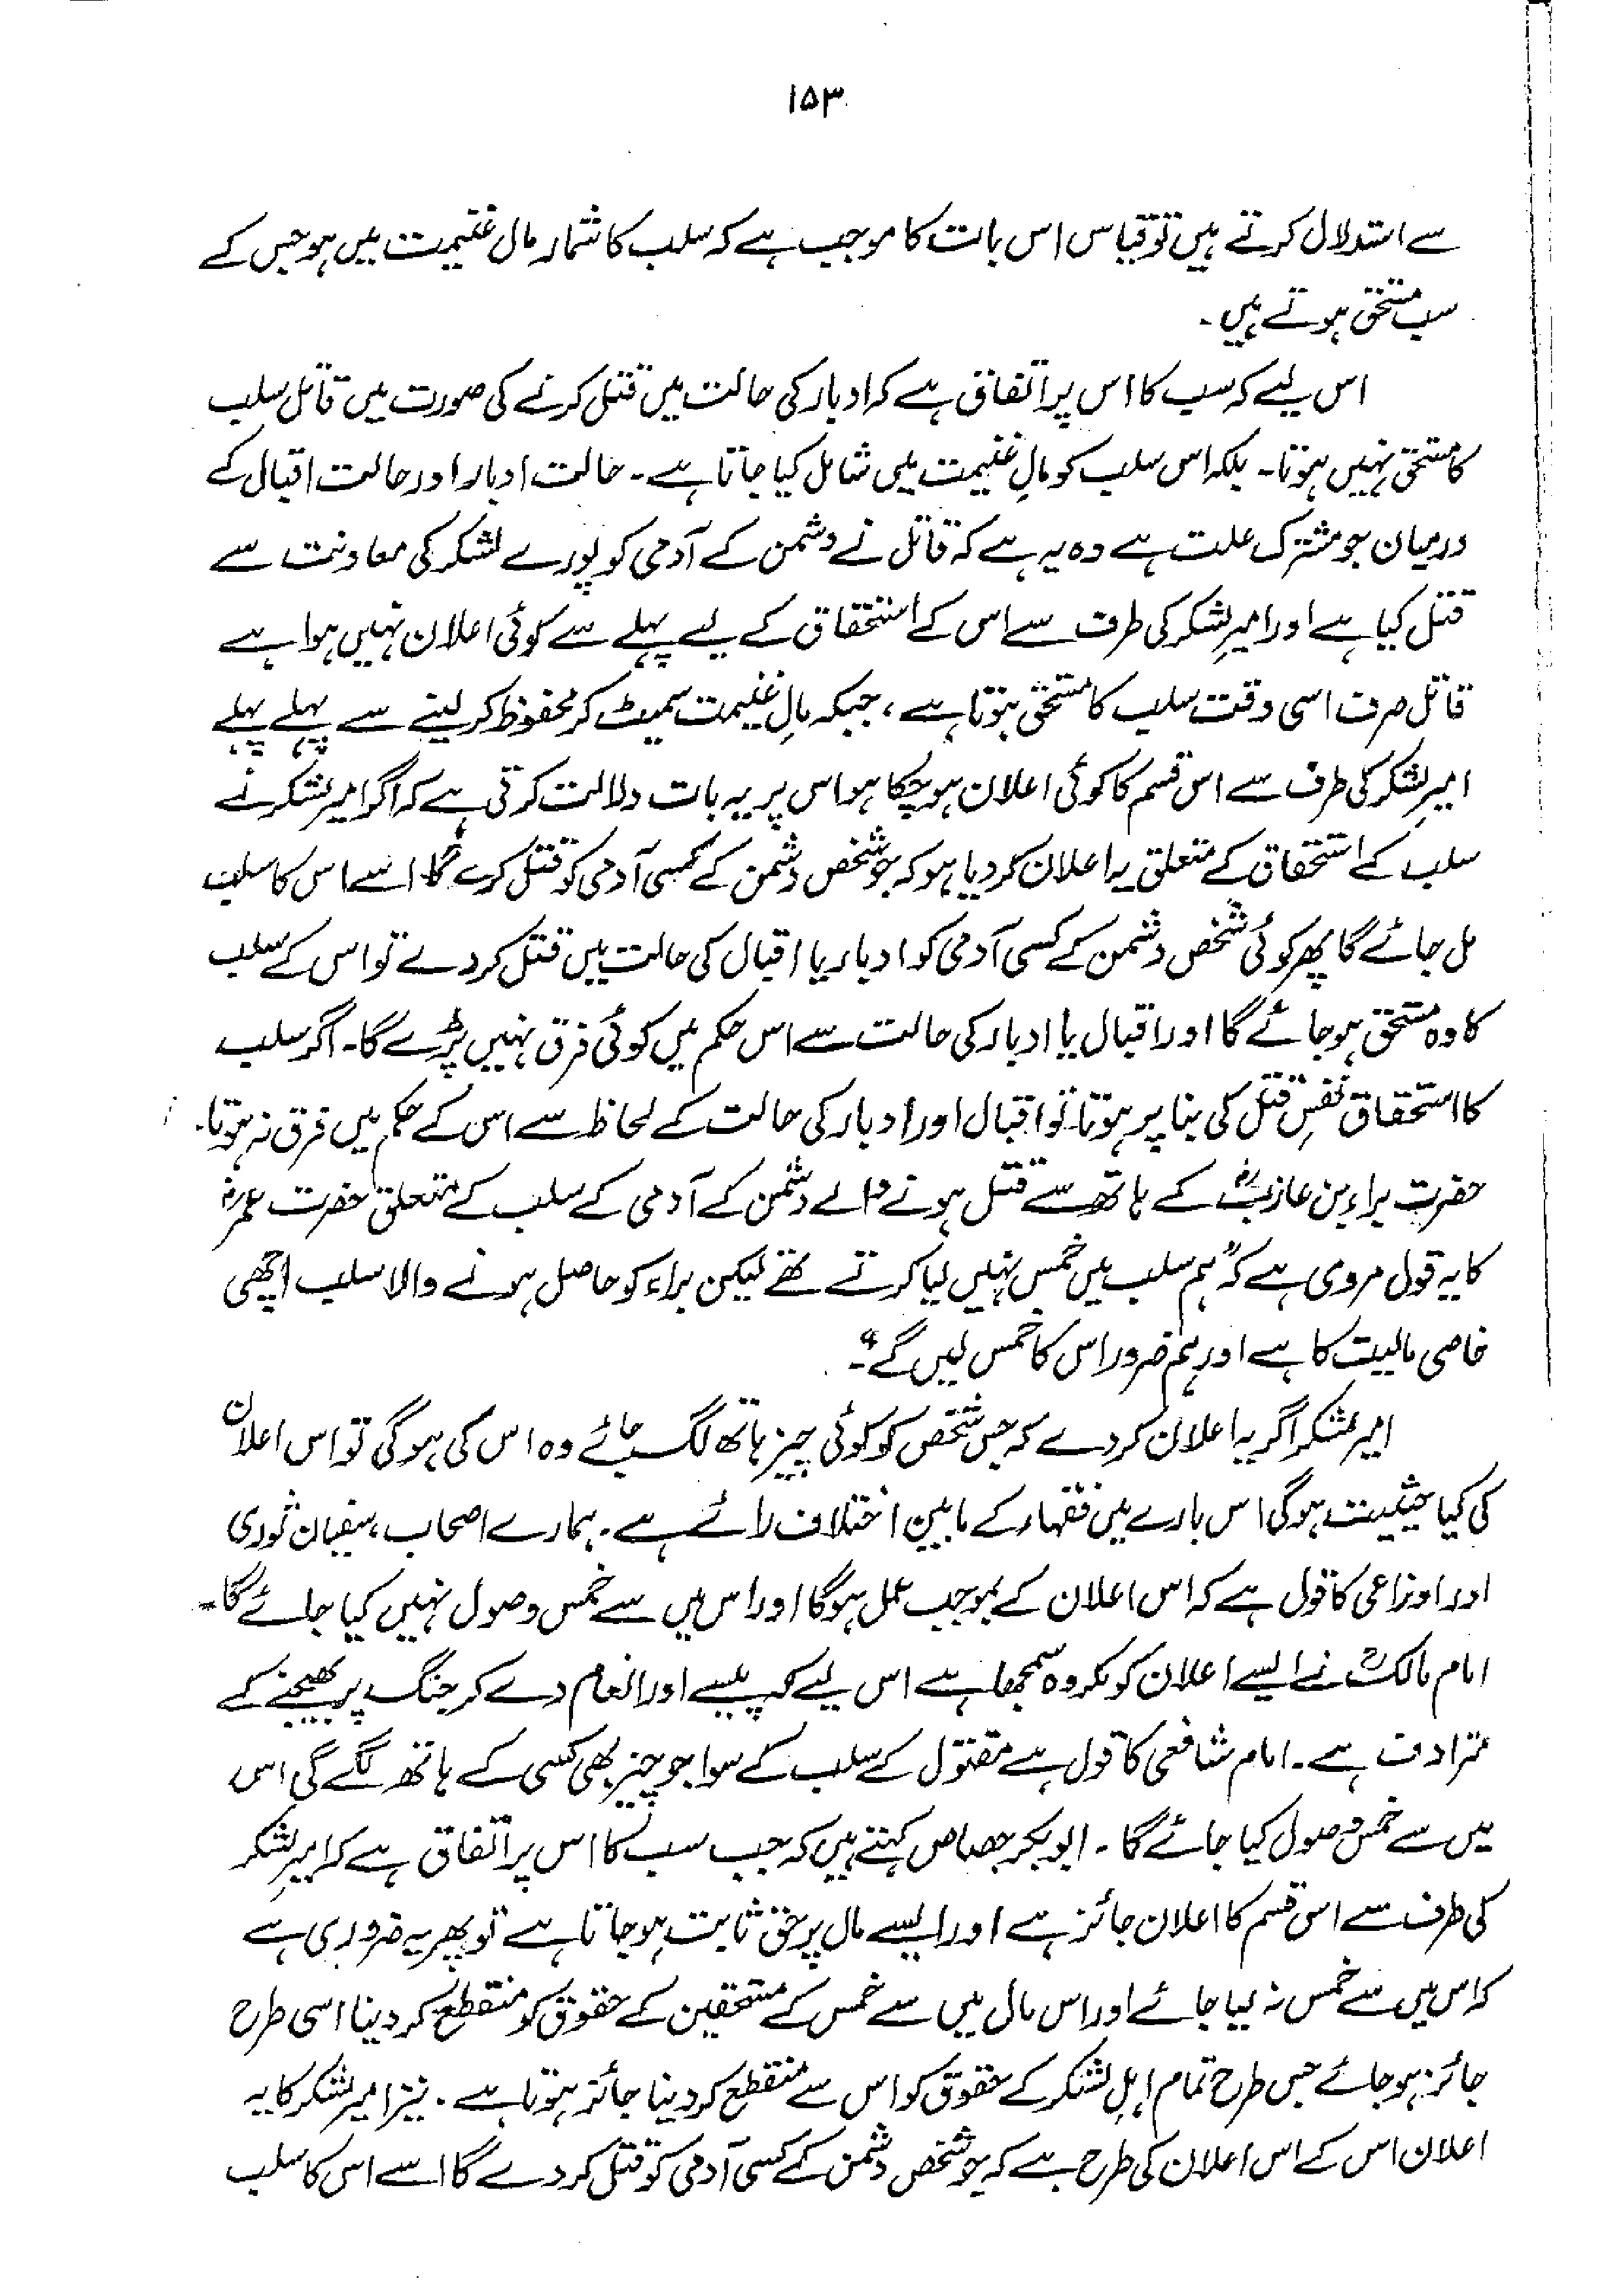 ۱۵۳
سے استدلال کرتے ہیں تو قیاس اس بات کا موجب ہے کہ سلب کا شمار مال غنیمت میں ہو جس کے
سب مستحق ہوتے ہیں۔
اس لیے کہ سب کا اس پر اتفاق ہے کہ ادبار کی حالت میں قتل کرنے کی صورت میں قاتل سلب
کا مستحق نہیں ہوتا۔ بلکہ اس سلب کو مالِ غنیمت میں شامل کیا جاتا ہے۔ حالت ادبار اور حالت اقبال کے
درمیان جو مشترک علت ہے وہ یہ ہے کہ قاتل نے دشمن کے آدمی کو پورے لشکر کی معاونت سے
قتل کیا ہے اور امیرِ لشکر کی طرف سے اس کے استحقاق کے لیے پہلے سے کوئی اعلان نہیں ہوا ہے
قاتل صرف اسی وقت سلب کا مستحق ہوتا ہے، جبکہ مالِ غنیمت سمیٹ کر محفوظ کر لینے سے پہلے پہلے
امیرِ لشکر کی طرف سے اس قسم کا کوئی اعلان ہو چکا ہو اس پر یہ بات دلالت کرتی ہے کہ اگر امیر لشکر نے
سلب کے استحقاق کے متعلق یہ اعلان کر دیا ہو کہ جو شخص دشمن کے کسی آدمی کو قتل کرے گا اسے اس کا سلب
مل جائے گا پھر کوئی شخص دشمن کے کسی آدمی کو ادبار یا اقبال کی حالت میں قتل کر دے تو اس کے سلب
کا وہ مستحق ہو جائے گا اور اقبال یا ادبار کی حالت سے اس حکم میں کوئی فرق نہیں پڑے گا۔ اگر سلب
کا استحقاق نفسِ قتل کی بنا پر ہوتا تو اقبال اور ادبار کی حالت کے لحاظ سے اس کے حکم میں فرق نہ ہوتا۔
حضرت براء بن عازبؓ کے ہاتھ سے قتل ہونے والے دشمن کے آدمی کے سلب کے متعلق حضرت عمرؓ
کا یہ قول مروی ہے کہ "ہم سلب میں خمس نہیں لیا کرتے تھے لیکن براء کو حاصل ہونے والا سلب اچھی
خاصی مالیت کا ہے اور ہم ضرور اس کا خمس لیں گے"۔
امیر لشکر اگر یہ اعلان کر دے کہ جس شخص کو کوئی چیز ہاتھ لگ جائے وہ اس کی ہو گی تو اس اعلان
کی کیا حیثیت ہو گی اس بارے میں فقہاء کے مابین اختلاف رائے ہے۔ ہمارے اصحاب، سفیان ثوری
اور اوزاعی کا قول ہے کہ اس اعلان کے بموجب عمل ہو گا اور اس میں سے خمس وصول نہیں کیا جائے گا۔
امام مالکؒ نے ایسے اعلان کو مکروہ سمجھا ہے اس لیے کہ یہ پیسے اور انعام دے کر جنگ پر بھیجنے کے
مترادف ہے۔ امام شافعی کا قول ہے مقتول کے سلب کے سوا جو چیز بھی کسی کے ہاتھ لگے گی اس
میں سے خمس وصول کیا جائے گا۔ ابوبکر جصاص کہتے ہیں کہ جب سب کا اس پر اتفاق ہے کہ امیرِ لشکر
کی طرف سے اس قسم کا اعلان جائز ہے اور ایسے مال پر حق ثابت ہو جاتا ہے تو پھر یہ ضروری ہے
کہ اس میں سے خمس نہ لیا جائے اور اس مال میں سے خمس کے مستحقین کے حقوق کو منقطع کر دینا اسی طرح
جائز ہو جائے جس طرح تمام اہلِ لشکر کے حقوق کو اس سے منقطع کر دینا جائز ہوتا ہے۔ نیز امیر لشکر کا یہ
اعلان اس کے اس اعلان کی طرح ہے کہ جو شخص دشمن کے کسی آدمی کو قتل کر دے گا اسے اس کا سلب